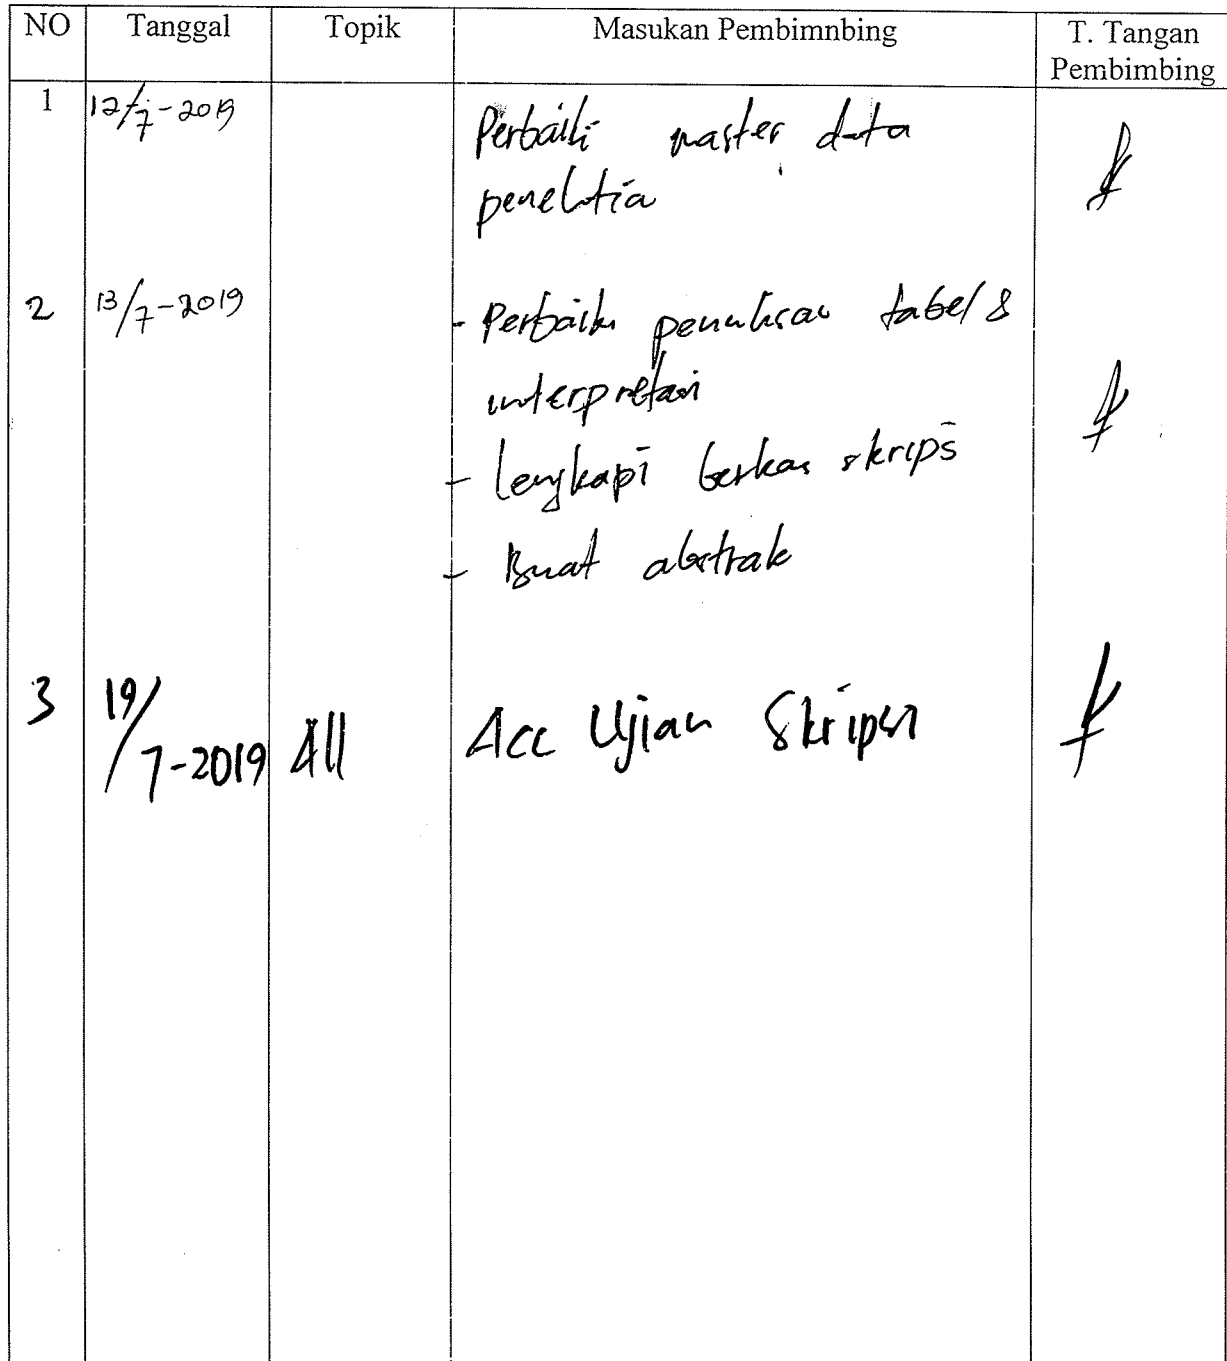 NO Tanggal Topik Masukan Pembimnbing T. Tangan
Pembimbing
1 12/7-2019 Perbaiki master data
penelitia
2 13/7-2019 - Perbaiki penulisan tabel &
interpretasi
- lengkapi berkas skripsi
- Buat abstrak
3 19/7-2019 All Acc Ujian Skripsi